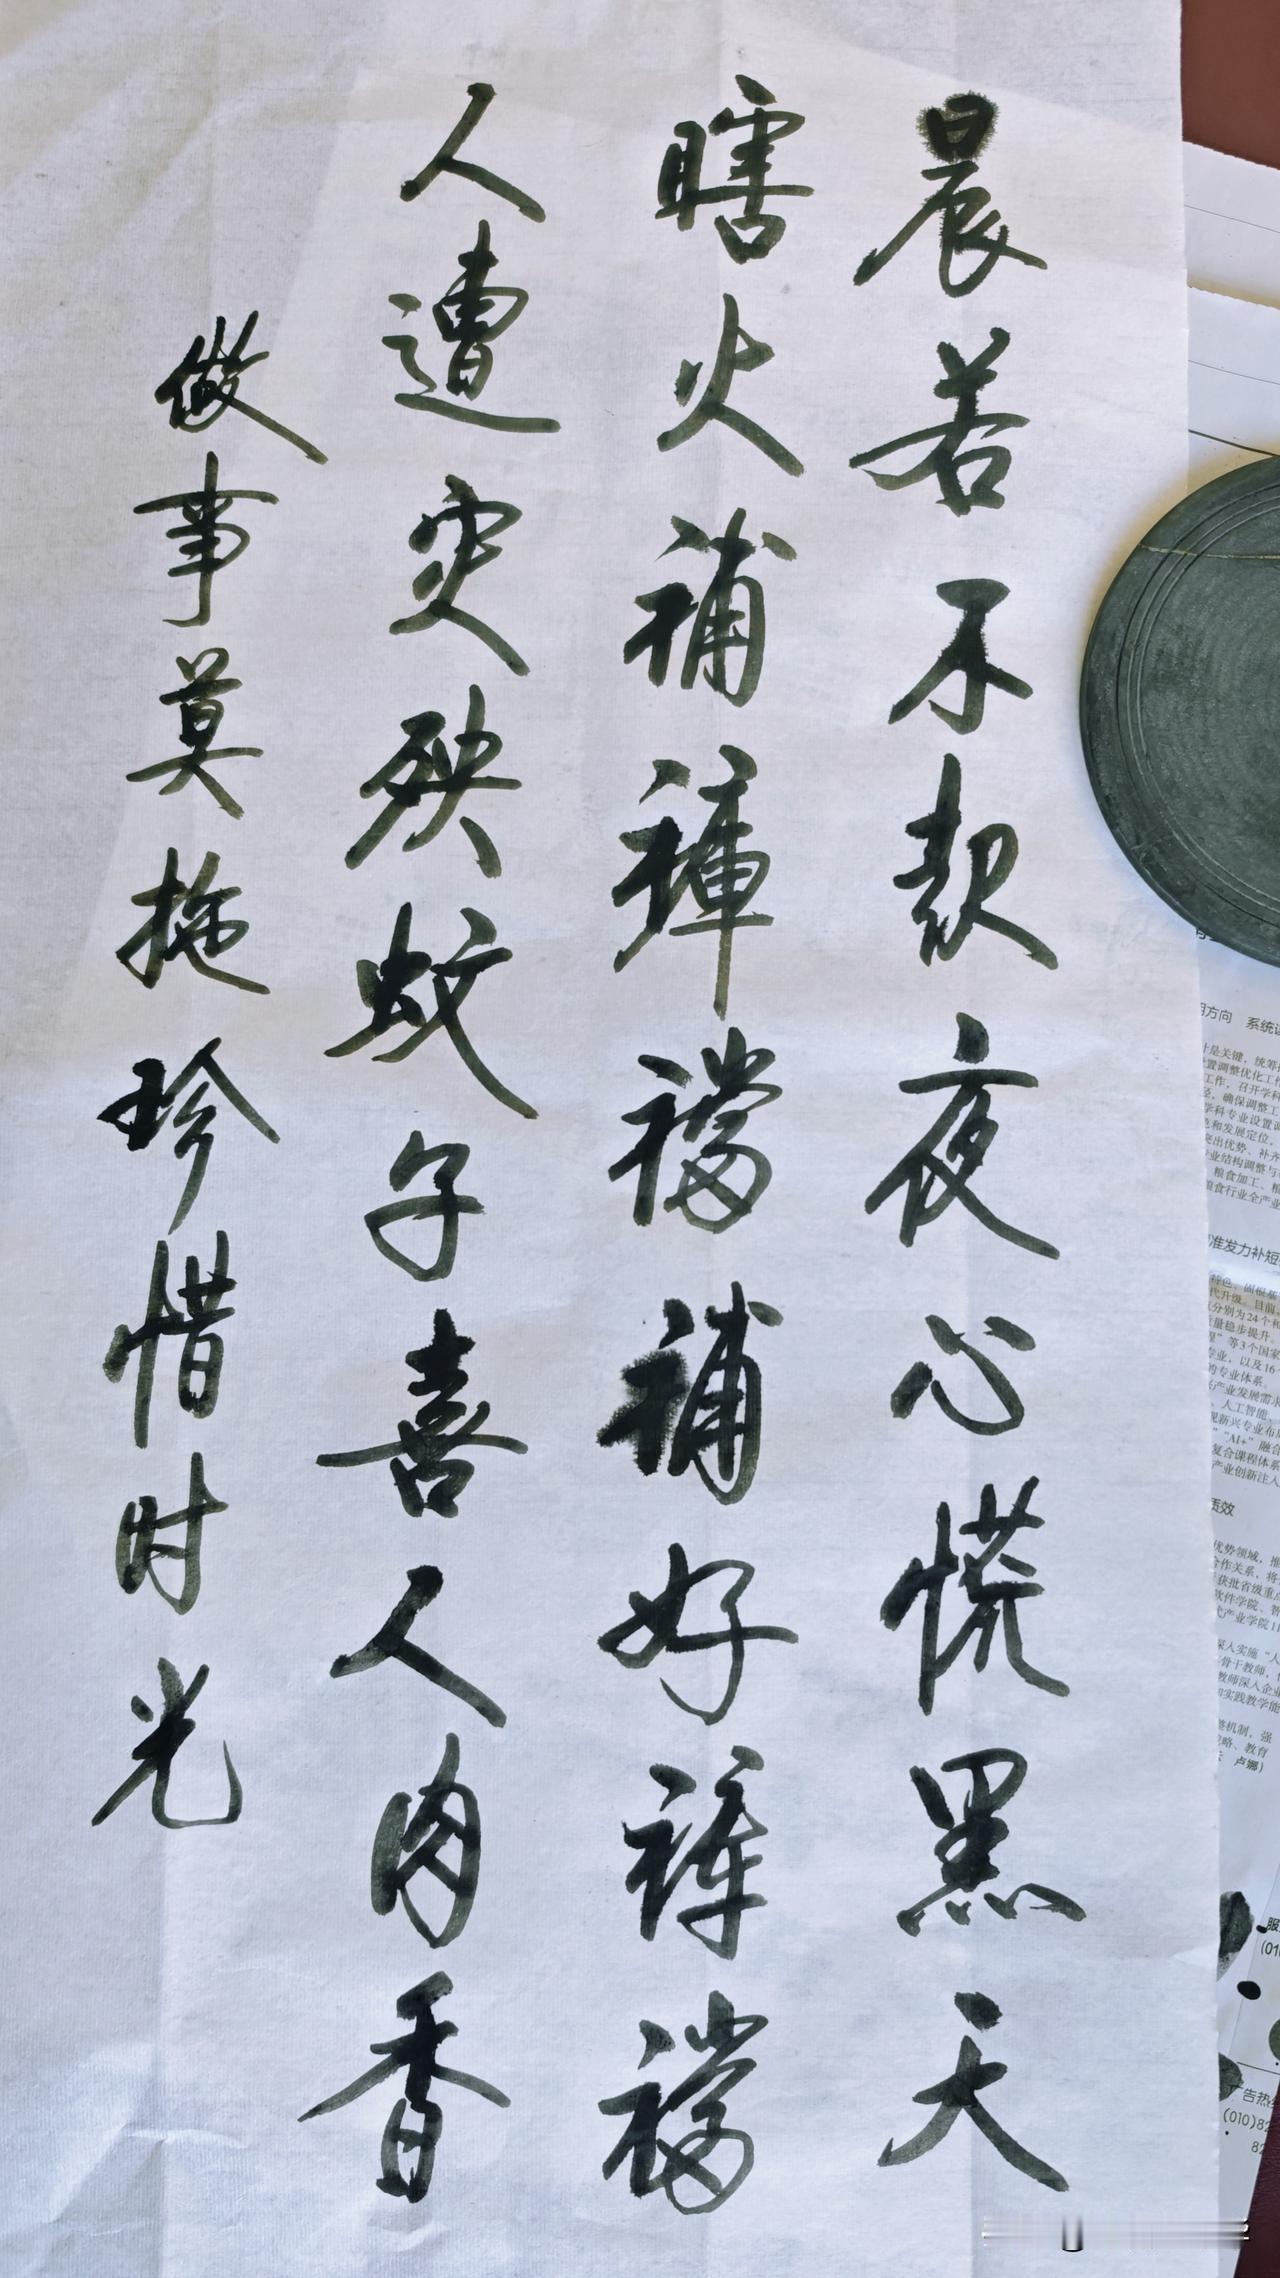 晨若不夜心慌黑天
瞎火補褲襠補好裤襠
人遭灾殃蚊子喜人肉香
做事莫拖珍惜时光
方向 系统
是关键，统筹
置调整优化工作
工作，召开学科
确保调整工
学科专业设置调
和发展定位，
突出优势、补齐
业结构调整与
粮食加工、
粮食行业全产业
准发力补短
特色，固根基
代升级。目前，
分别为24个和
质量稳步提升。
等3个国家
专业，以及16个
的专业体系。
产业发展需求
、人工智能、
新兴专业布局
“AI+”融合
复合课程体系
产业创新注入
质效
优势领域，推
合作关系，将
获批省级重点
软件学院、智
产业学院11
深入实施“人
骨干教师，
教师深入企业
和实践教学能
机制，强
略、教育
卢娜）
服
(010
广告热
(010)82
82